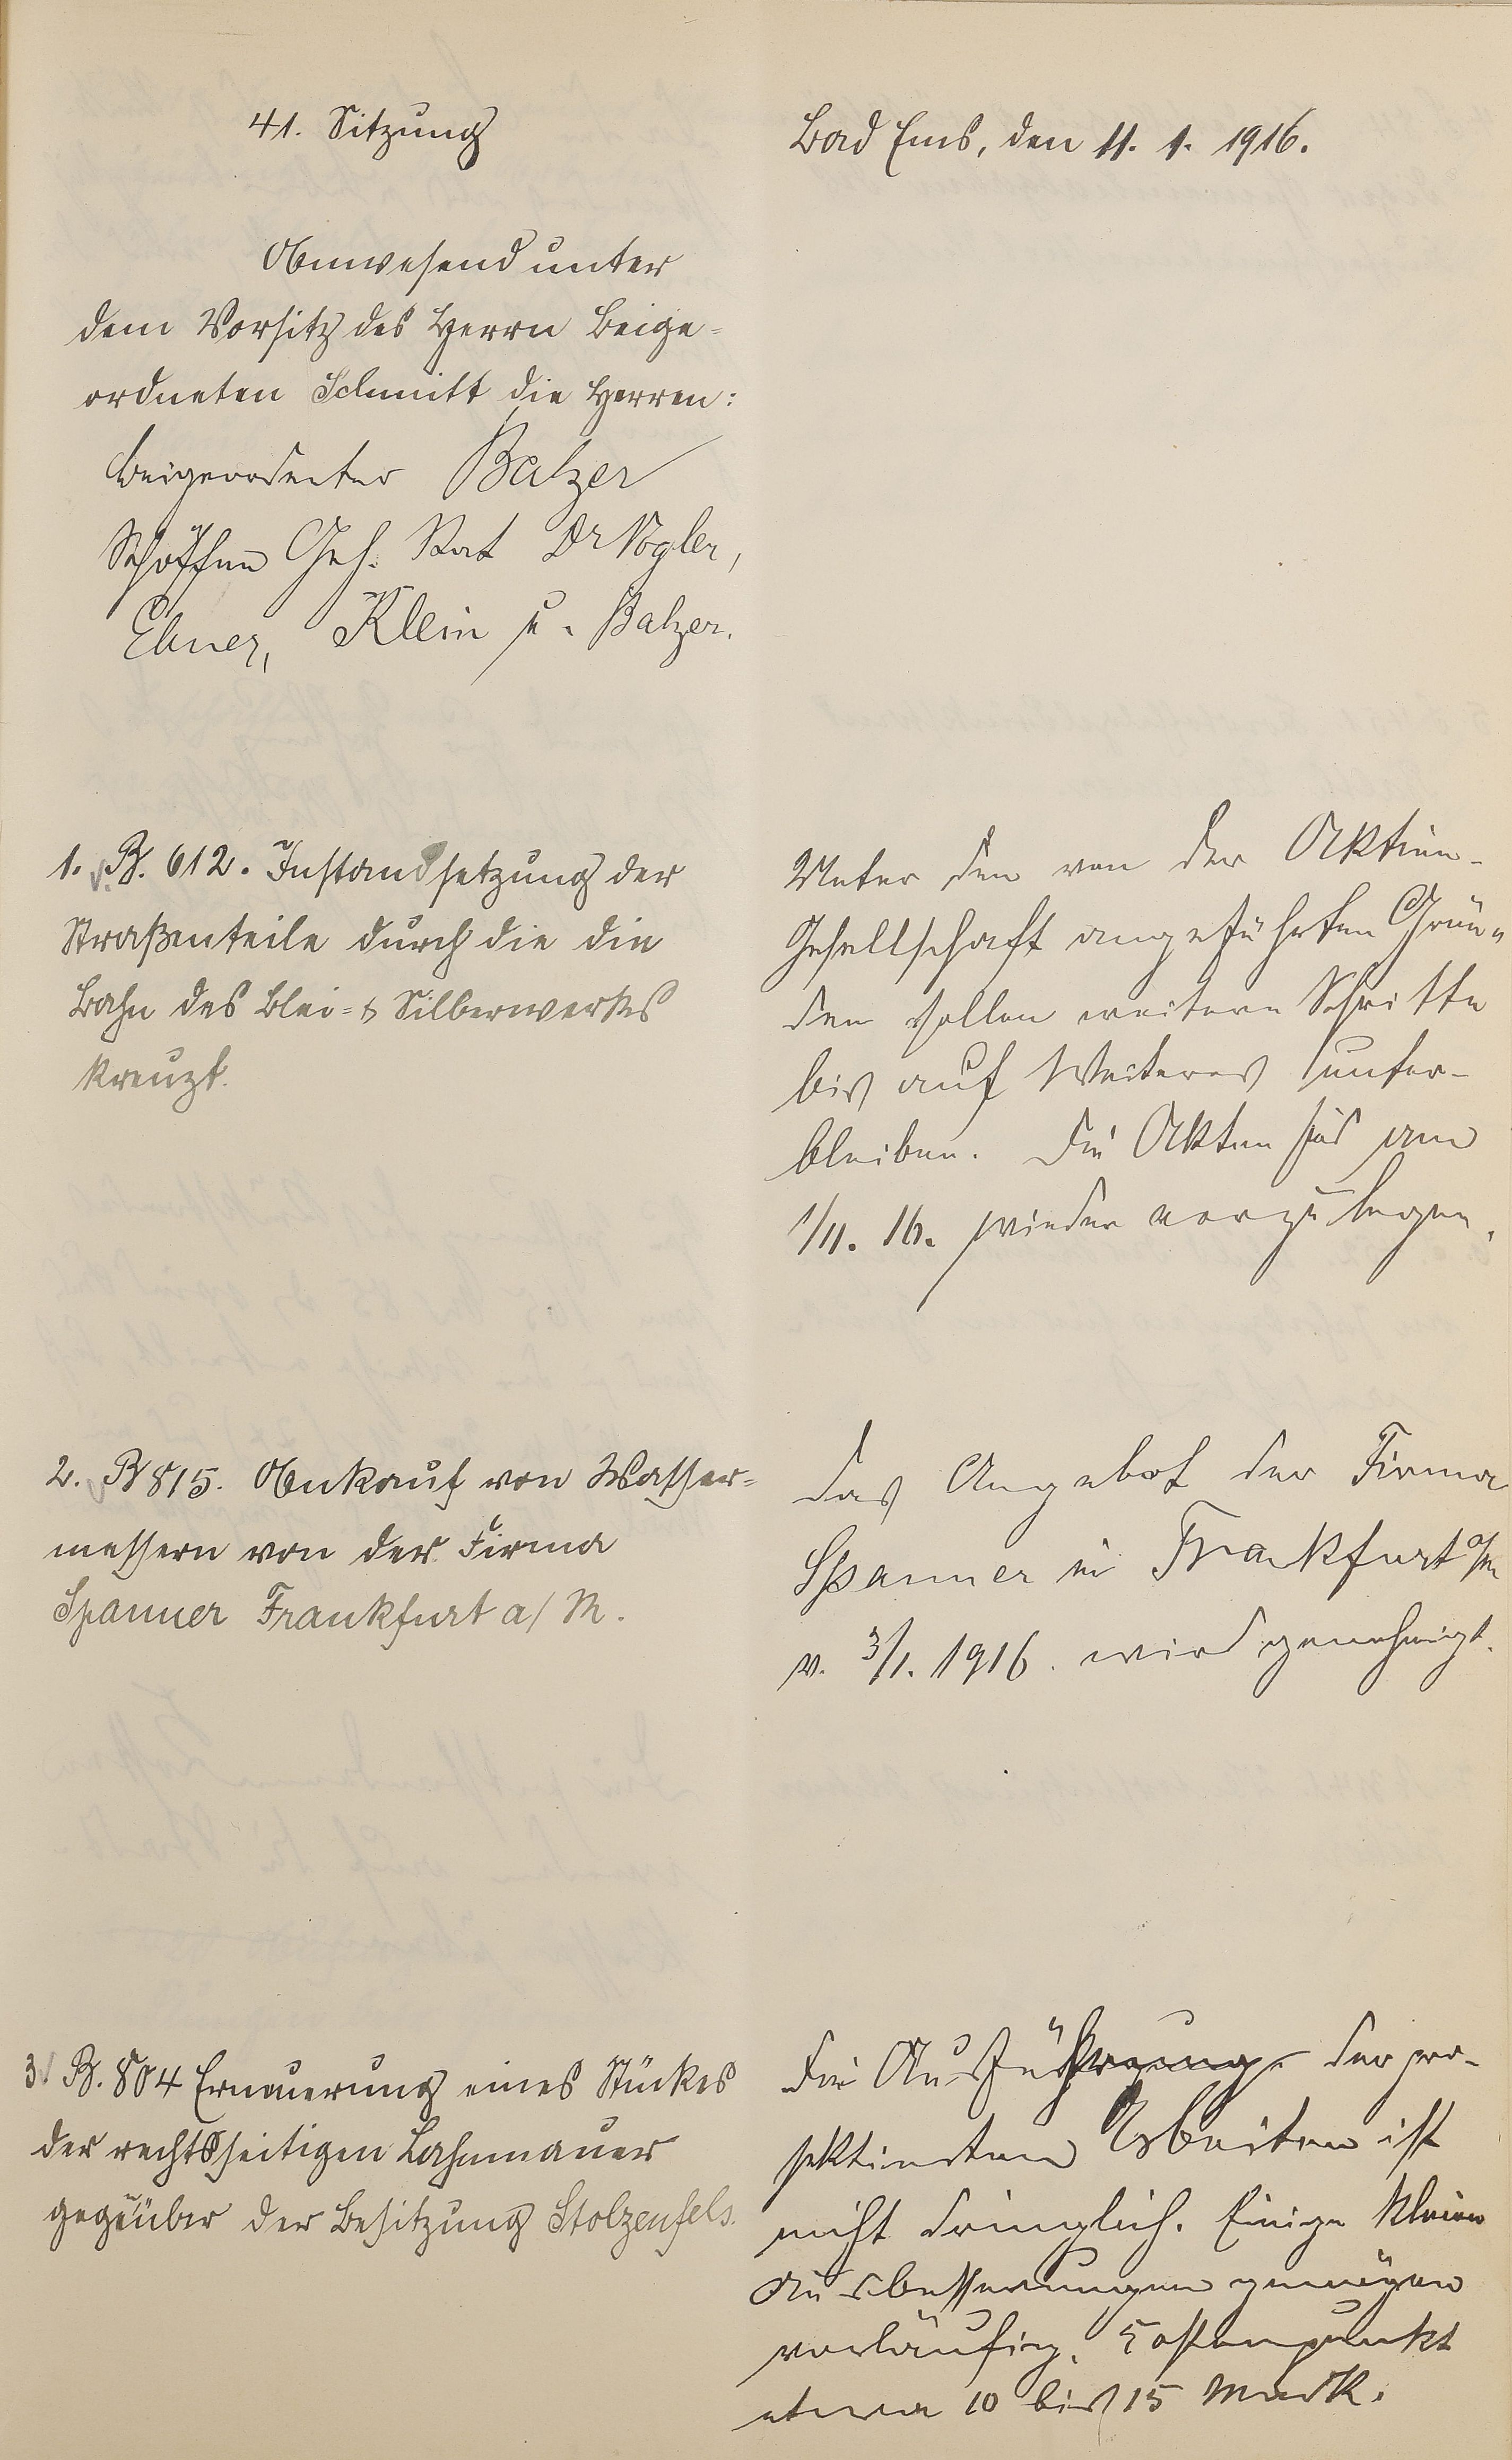 41. Sitzung
Bad Ems, den 11. 1. 1916.
Anwesend unter
dem Vorsitz des Herrn Beige-
ordneten Schmitt die Herren:
Beigeordneter Balzer
Schöffen Geh. Rat Dr Vogler,
Ebner, Klein u. Balzer.
1. B. 612. Instandsetzung der
Straßenteile durch die die
Bahn des Blei- & Silberwerkes
kreuzt.
Unter den von der Aktien-
Gesellschaft angeführten Grün-
den sollen weitere Schritte
bis auf Weiteres unter-
bleiben. Die Akten sind am
1/11. 16. wieder vorzulegen.
2. B 815. Ankauf von Wasser-
messern von der Firma
Spanner Frankfurt a/M.
Das Angebot der Firma
Spanner in Frankfurt a/M
v. 3/1. 1916. wird genehmigt.
3. B. 804 Erneuerung eines Stückes
der rechtsseitigen Lahnmauer
gegenüber der Besitzung Stolzenfels.
Die Ausführung der pro-
jektierten Arbeiten ist
nicht dringlich. Einige kleine
Ausbesserungen genügen
vorläufig. Kostenpunkt
etwa 10 bis 15 Mark.